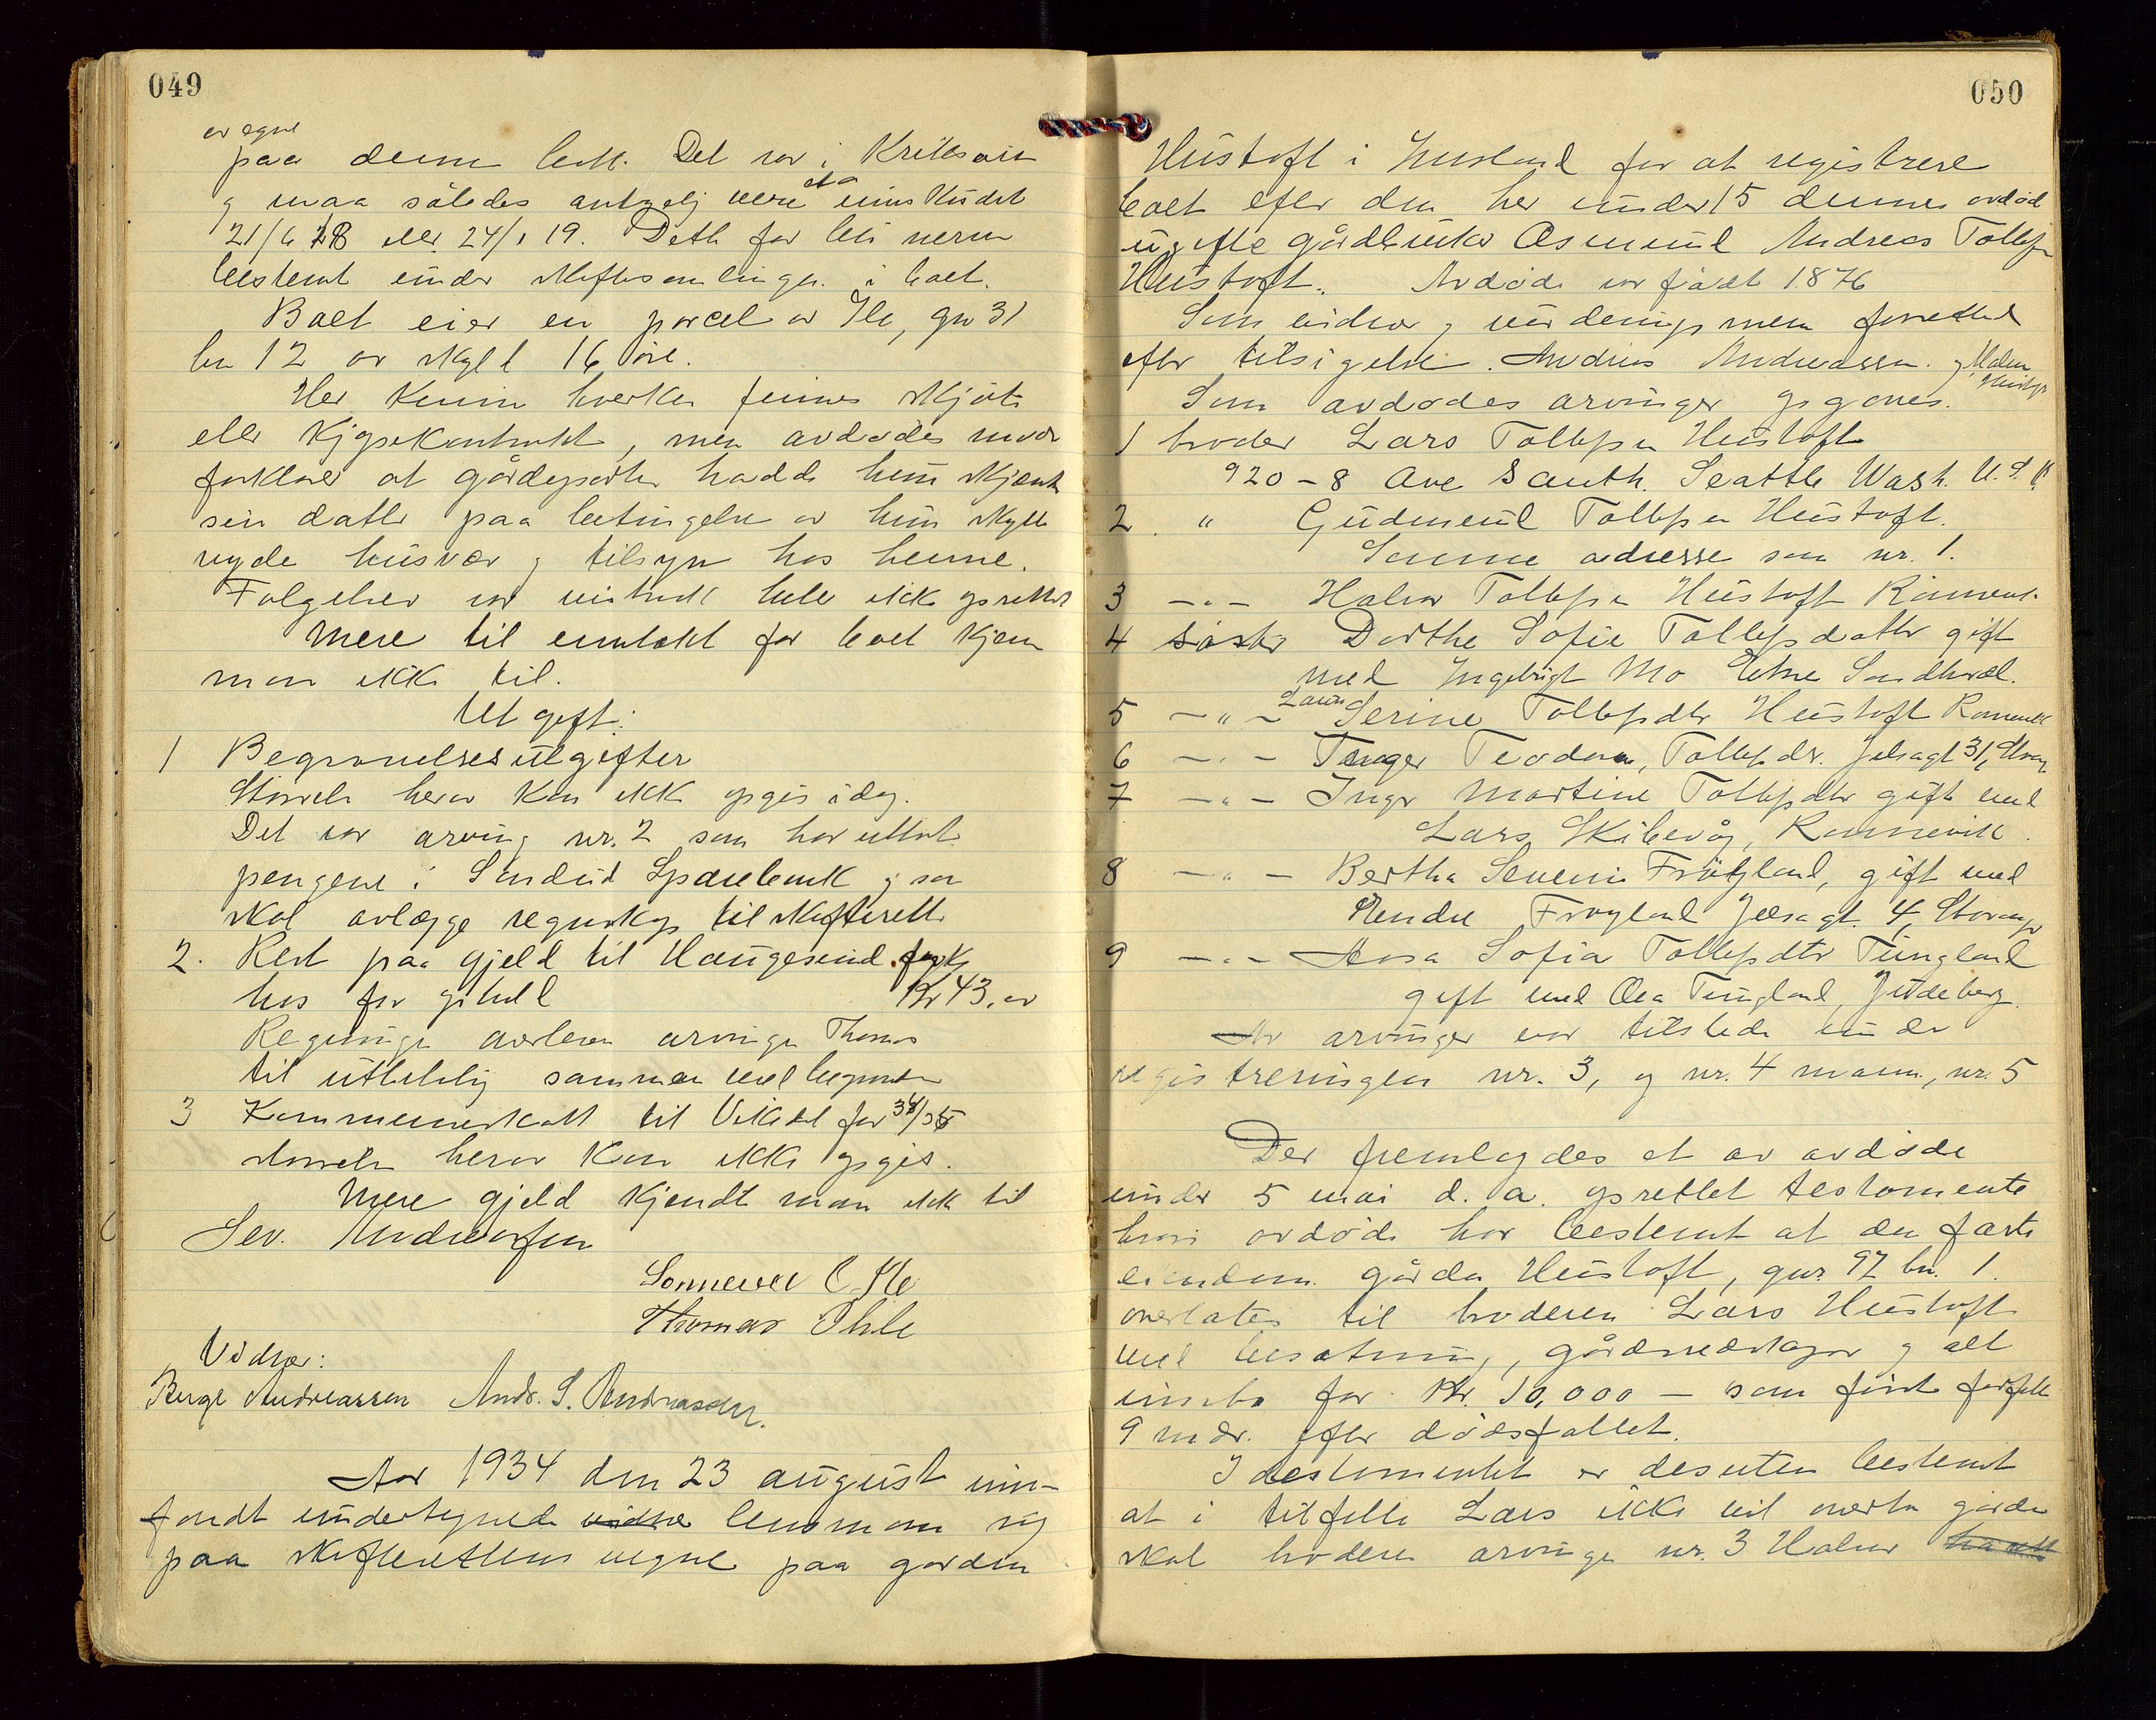 049
av egne
paa denne
Det var i
maa således antagelig være
21/6 18 eller 24/1 19. Dette får bli nærm
bestemt under skiftesamlingen i boet.
Boet eier en parcel av Ile, gn 31
bn 12 av skyld 16 öre.
Her kunne hverken finnes skjöte
eller kjøpekontrakt, men avdødes mor
forklarer at gårdeparten hadde hun skjænk
sin datter paa betingelse av hun skulle
nyde husvær og tilsyn hos henne.
Følgebrev var heller ikke oprettet
Mere til inntekt for boet kjen
man ikke til.
Utgift:
1 Begravelsesutgifter
Størrelsen herav kan ikke opgis idag.
Det var arving nr. 2 som har uttat
pengene i Sandeid Sparebank og som
skal avlægge regnskap til skifteretten
2. Rest paa gjeld til Haugesund syke
hus for ophold Kr 43, av
Regninger arvingen Thomas
til utbetaling sammen med
3 Kommuneskatt til Vikedal for 34/35
størrelsen herav kan ikke opgis.
Mere gjeld kjendt man ikke til
Sev. Andreassen
Thomas Ihle
Vidner:
Børge Andreassen Andr. S. Andreassen.
Aar 1934 den 23 august inn-
fandt undertegnede vidne lensmann sig
paa skifterettens vegne paa gården
050
Hustoft i Imsland for at registrere
boet efter den her under 15 dennes avdød
ugifte gårdbruker Asmund Andreas Tollefsen
Hustoft. Avdøde var født 1876
Som vidner og vurderingsmenn forrettet
efter tilsigelse Andreas Andreassen og
Som avdødes arvinger opgaves.
1 broder Lars Tollefsen Hustoft
920 - 8 Ave South. Seattle Wash. U.S.A.
2 " Gudmund Tollefsen Hustoft.
Samme adresse som nr. 1.
3 - " - Halvor Tollefsen Hustoft
4 søster Dorthe Sofie Tollefsdatter gift
med Ingebrigt Mo Etne Søndhordl.
5 - " - Laura Serine Tollefsdtr Hustoft
6 - " - Teodora, Tollefsdr. Jelsagt 31, Stvgr
7 - " - Inger Martine Tollefsdtr gift med
Lars Skibevåg, Ramnevik.
8 - " - Bertha Severine Frøyland, gift med
Endre Frøyland Jelsagt. 4, Stavanger
9 - " - Anna Sofia Tollefsdtr Tungland
gift med Ola Tungland, Judeberg.
Av arvinger var tilstede under
registreringen nr. 3, og nr. 4 mann, nr. 5
Der fremlagdes et av avdøde
under 5 mai d. a. oprettet testamente
hvori avdøde har bestemt at den faste
eiendom gården Hustoft, gnr. 92 bn. 1.
overlates til broderen Lars Hustoft
med besetning, gårdsredskaper og alt
innbo for Kr. 10,000 - som först forfall
9 mdr. efter dødsfallet.
I testamentet er desuten bestemt
at i tilfelle Lars ikke vil overta gården
skal broderen arvinge nr. 3 Halvor